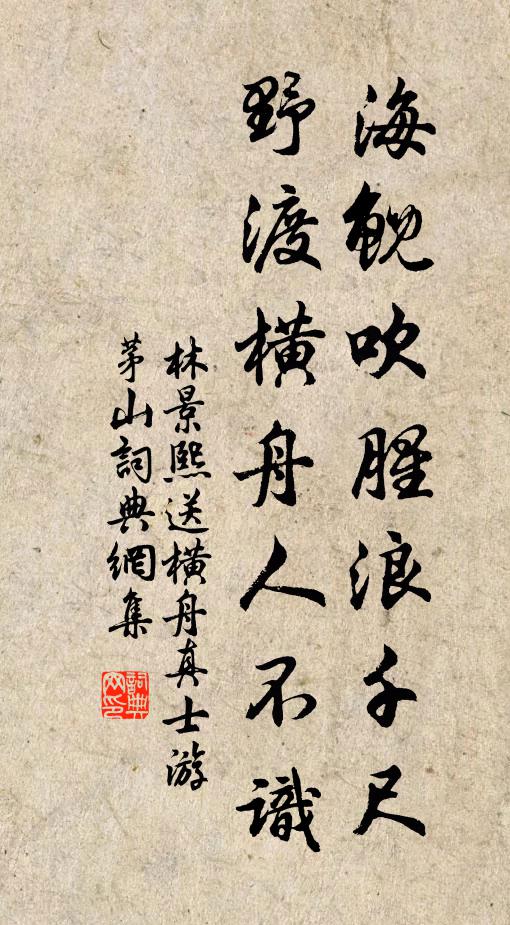 海鯢吹腥浪千尺
野渡橫舟人不識
林景熙送橫舟真士游
茅山詞典網集
詞典
网印